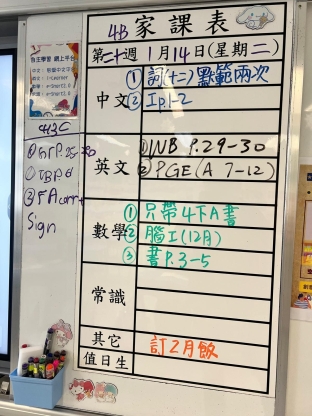 4B 家課表
第二十週 1月14日(星期二)
中文 ① 詞(十二)點範兩次
② Ip.1-2
英文 ① WB P.29-30
② PGE(A 7-12)
數學 ① 只帶4下A書
② 腦I(12月)
③ 書P.3-5
常識
其它 訂2月飯
值日生
自主學習 網上平台
Sign